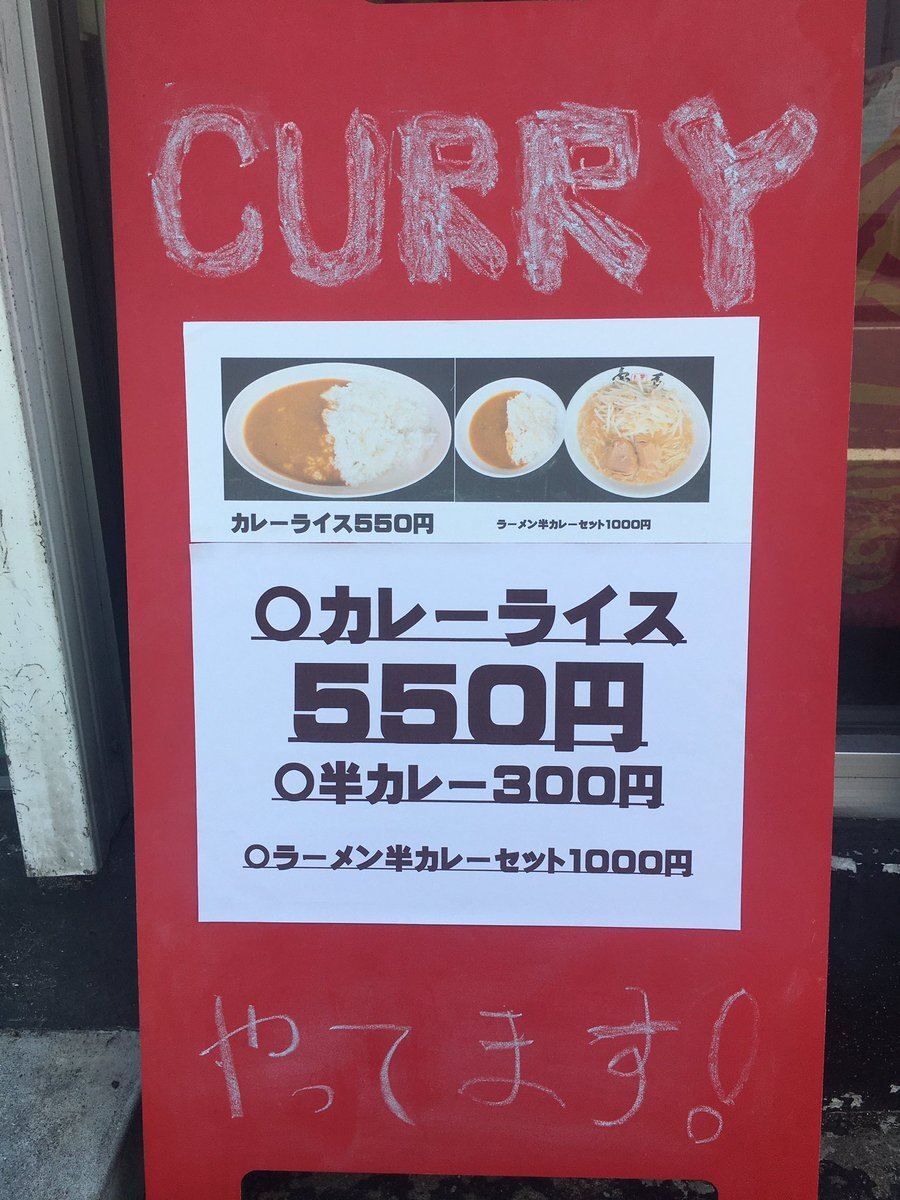 CURRY
カレーライス550円
ラーメン半カレーセット1000円
〇カレーライス
550円
〇半カレー300円
〇ラーメン半カレーセット1000円
やってます!